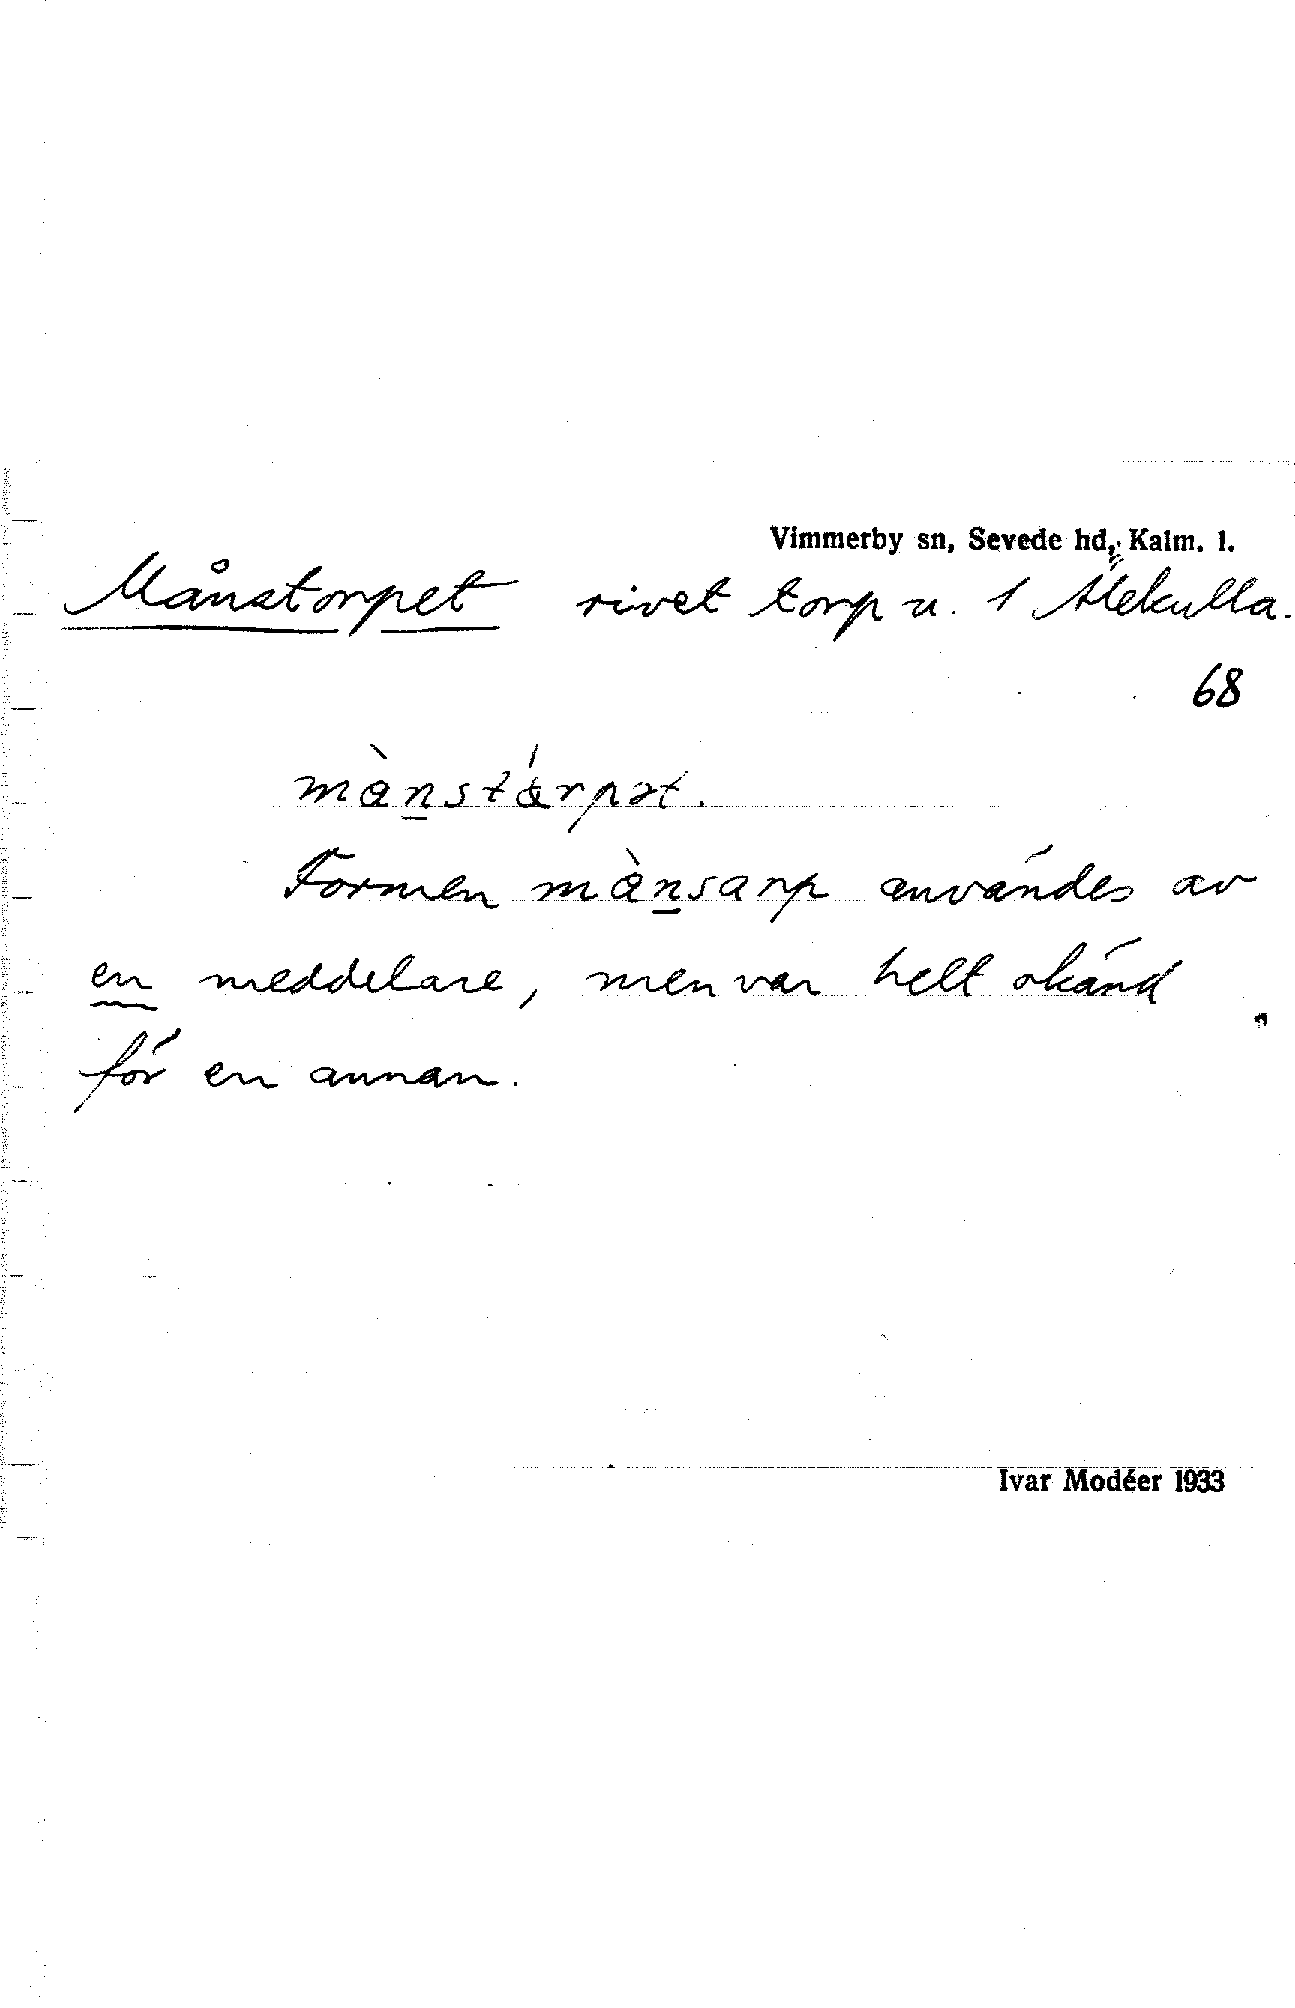 Vimmerby sn, Sevede hd, Kalm. l.
Månstorpet rivet torp u. 1 Älekulla.
68
mànstárpət.
Formen mànsarp användes av
en meddelare, men var helt okänd
för en annan.
Ivar Modéer 1933